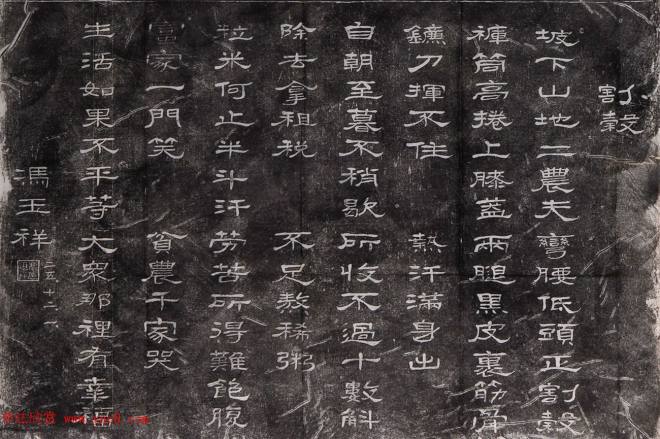 割穀
坡下山地二農夫 彎腰低頭正割穀
褲筒高捲上膝蓋 兩腿黑皮裹筋骨
鐮刀揮不住 熱汗滿身出
自朝至暮不稍歇 所收不過十數斛
除去拿租税 不足熬稀粥
粒米何止半斗汗 勞苦所得難飽腹
富家一門笑 貧農千家哭
生活如果不平等 大衆那裡有幸福
馮玉祥 二五、十二、